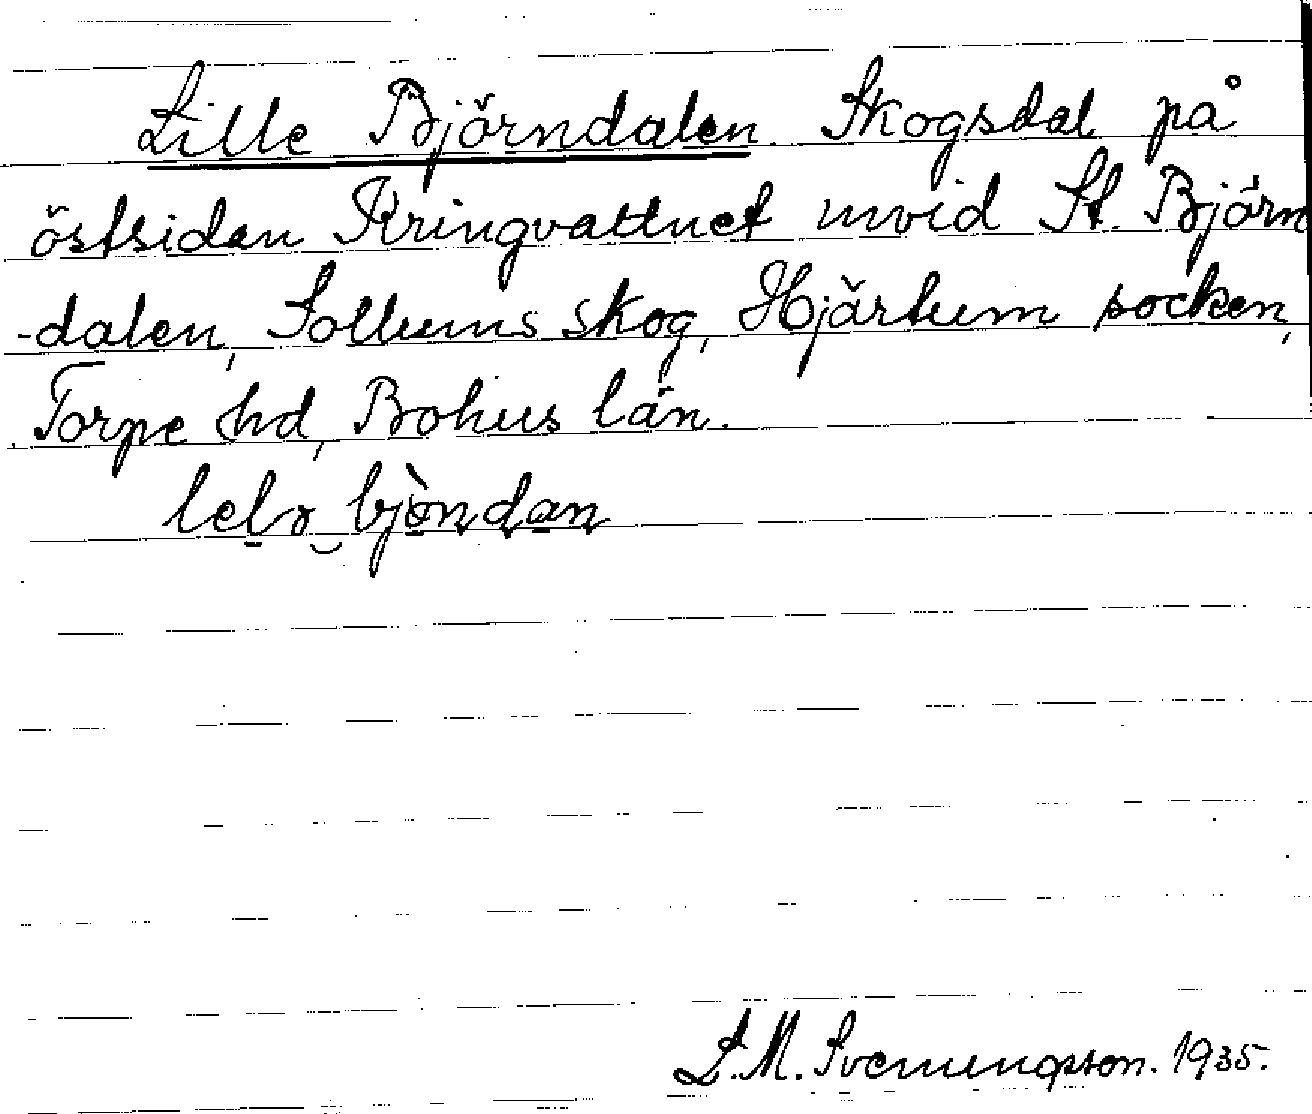 Lille Björndalen. Skogsdal på
östsidan Kringvattnet invid St. Björn
-dalen, Sollums skog, Hjärtum socken,
Torpe hd, Bohus län.
L.M. Svenungsson. 1935.